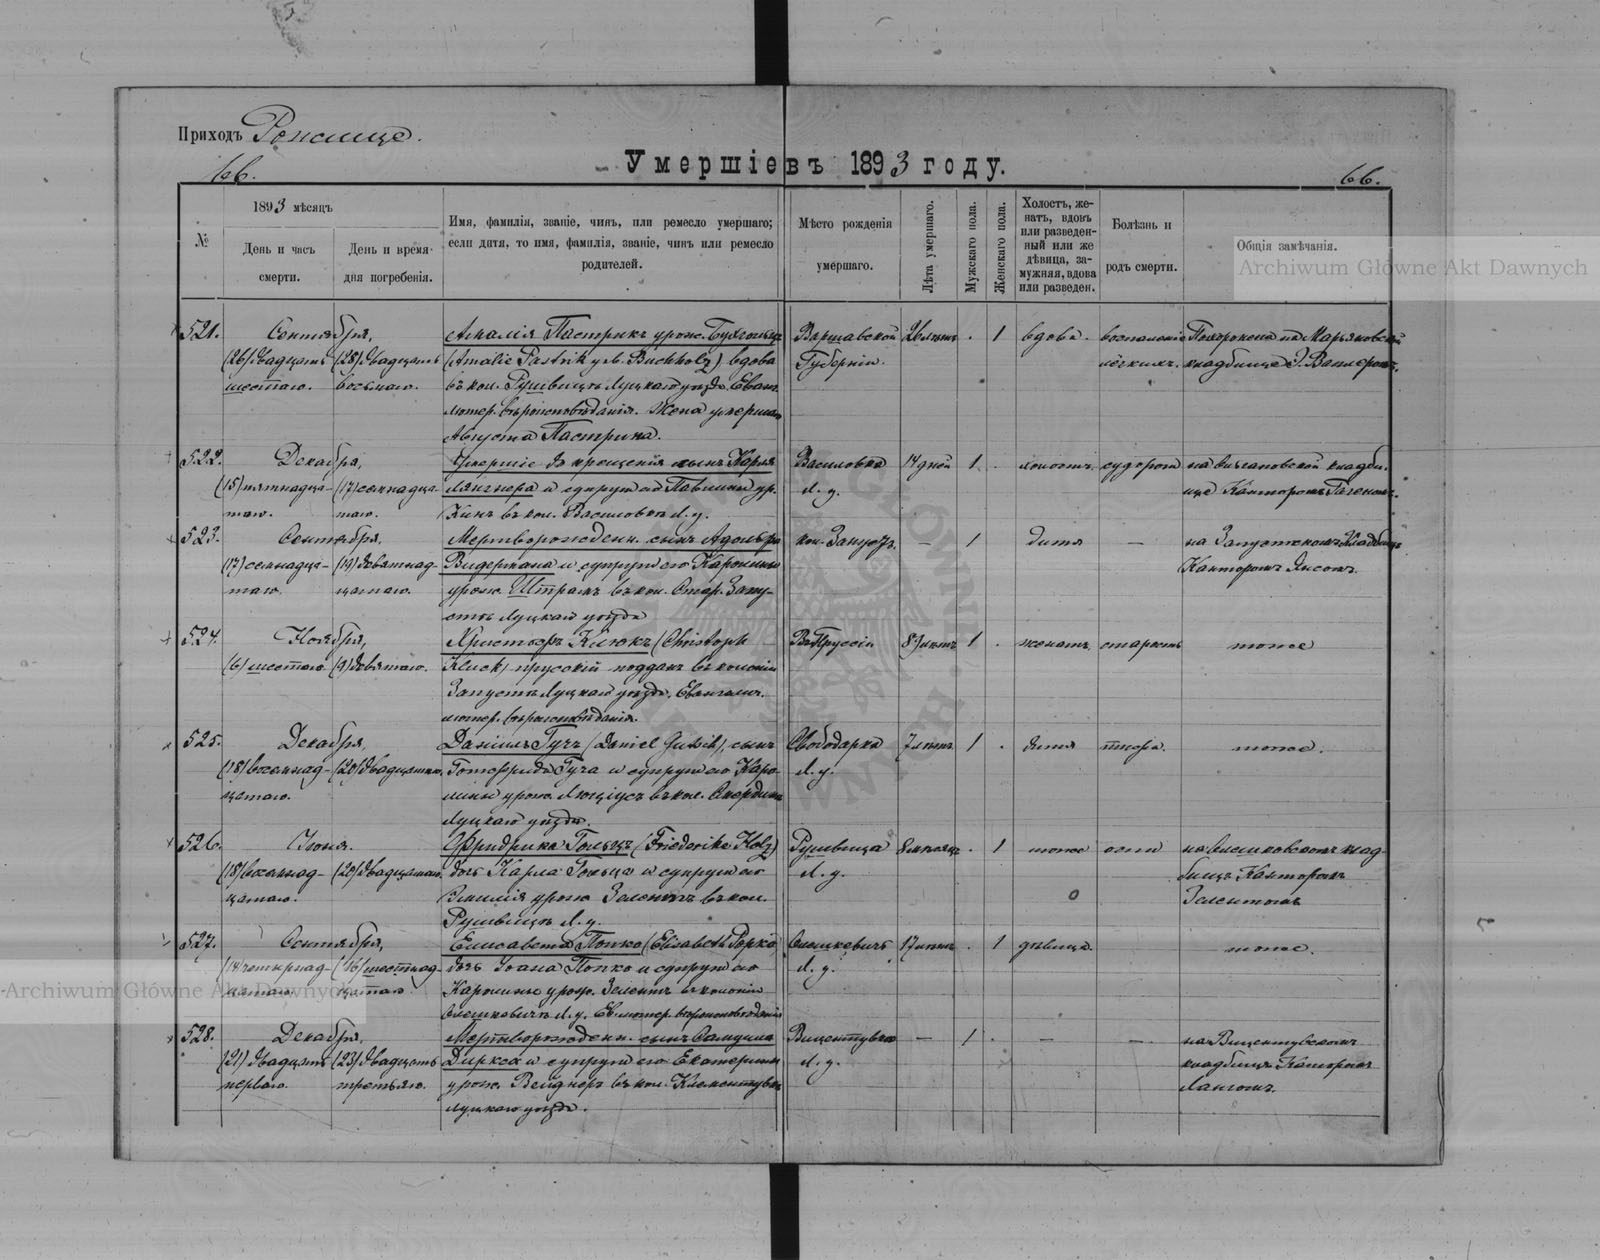 Приходъ Рожище.
Умершіе въ 1893 году.
66.
66.
№
1893 мѣсяцъ
День и часъ
смерти.
День и время
дня погребенія.
Имя, фамилія, званіе, чинъ, или ремесло умершаго;
если дитя, то имя, фамилія, званіе, чинъ или ремесло
родителей.
Мѣсто рожденія
умершаго.
Лѣта умершаго.
Мужскаго пола.
Женскаго пола.
Холостъ, же-
натъ, вдовъ
или разведен-
ный или же
дѣвица, за-
мужняя, вдова
или разведен.
Болѣзнь и
родъ смерти.
Общія замѣчанія.
Archiwum Główne Akt Dawnych
521.
Сентября,
(26) двадцать
шестаго.
(28) двадцать
восьмаго.
Амалія Пастрикъ урож. Бухгольцъ
(Amalie Pastrik geb. Buchholz) вдова
въ кол. Рушвицъ Луцкаго уѣзда. Еванг.
лютер. вѣроисповѣданія. Жена умершаго
Августа Пастрика.
Варшавской
Губерніи.
1
вдова.
воспаленіе
лёгкихъ.
522.
Декабря,
(15) пятнадца-
таго.
(17) семнадца-
таго.
Умершіе до крещенія сынъ Карла
Лангнера и супруги его Павлины ур.
въ кол. Василовка Л. у.
Василовка
Л. у.
14 дней
1
холостъ
судороги
кладби-
ще Канторомъ
523.
Сентября,
(17) семнадца-
таго.
(19) девятнад-
цатаго.
Мертворожденн. сынъ Адольфа
Видемана и супруги его Каролины
урож. Штрамъ въ кол. Стар. Запу-
стъ Луцкаго уѣзда
кол. Запустъ
—
1
дитя
—
на Запустскомъ кладбищѣ
Канторомъ
524.
Ноября,
(6) шестаго
(9) девятаго.
Христофъ Клюкъ (Christoph
Kluck) прусскій поддан. въ колоніи
Запустъ Луцкаго уѣзда. Евангелич.
лютер. вѣроисповѣданія.
Въ Пруссіи
83 лѣтъ
1
женатъ
старость
тоже
525.
Декабря,
(18) восемнад-
цатаго.
(20) двадцатаго.
Даніилъ Гучъ (Daniel Gutsch), сынъ
Готфрида Гуча и супруги его Каро-
лины урож. Люціусъ въ кол.
Луцкаго уѣзда.
Свободарка
Л. у.
7 лѣтъ
1
дитя
тоже.
526.
Іюня.
(18) восемнад-
цатаго.
(20) двадцатаго.
Фридрика Гольцъ (Friederike Holz)
дочь Карла Гольца и супруги его
Эмиліи урож. въ кол.
Рушвицъ Л. у.
Рушвица
Л. у.
8 мѣсяца
1
тоже
оспа
клад-
бищѣ Канторомъ
527.
Сентября,
(14) четырнад-
цатаго
(16) шестнад-
цатаго
Елисавета Попко (Elisabeth Popko)
дочь Іоана Попко и супруги его
Каролины урож. въ колоніи
Олешкевичъ Л. у. Ев. лютер. вѣроисповѣданія
Олешкевичъ
Л. у.
17 лѣтъ
1
дѣвица.
тоже.
Archiwum Główne Akt Dawnych
528.
Декабря,
(21) двадцать
перваго.
(23) двадцать
третьяго.
Мертворожденн. сынъ Самуила
Диркса и супруги его Екатерины
урож. Вейднеръ въ кол. Клементувка
Луцкаго уѣзда.
Вицентувка
Л. у.
—
1
—
—
на Вицентувскомъ
кладбищѣ Канторомъ
Лангомъ.